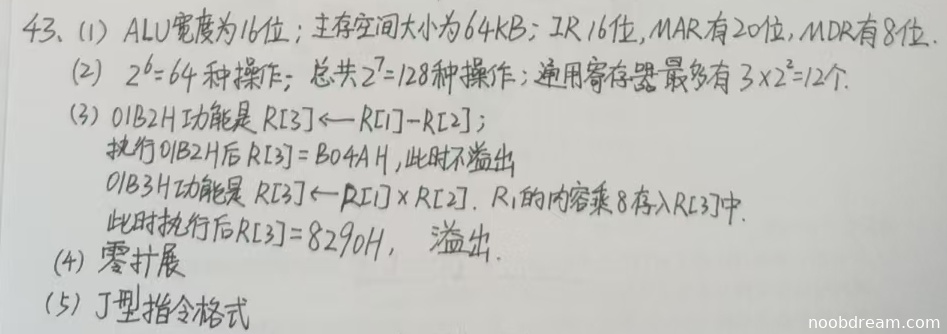 43、(1) ALU宽度为16位；主存空间大小为64KB；IR 16位，MAR有20位，MDR有8位．
(2) 2⁶=64种操作；总共2⁷=128种操作；通用寄存器最多有 3×2²=12个．
(3) 01B2H功能是 R[3]←R[1]-R[2]；
执行01B2H后R[3]=B04AH，此时不溢出
01B3H功能是 R[3]←R[1]×R[2]．R₁的内容乘8存入R[3]中．
此时执行后R[3]=8290H，溢出．
(4) 零扩展
(5) J型指令格式
noobdream.com